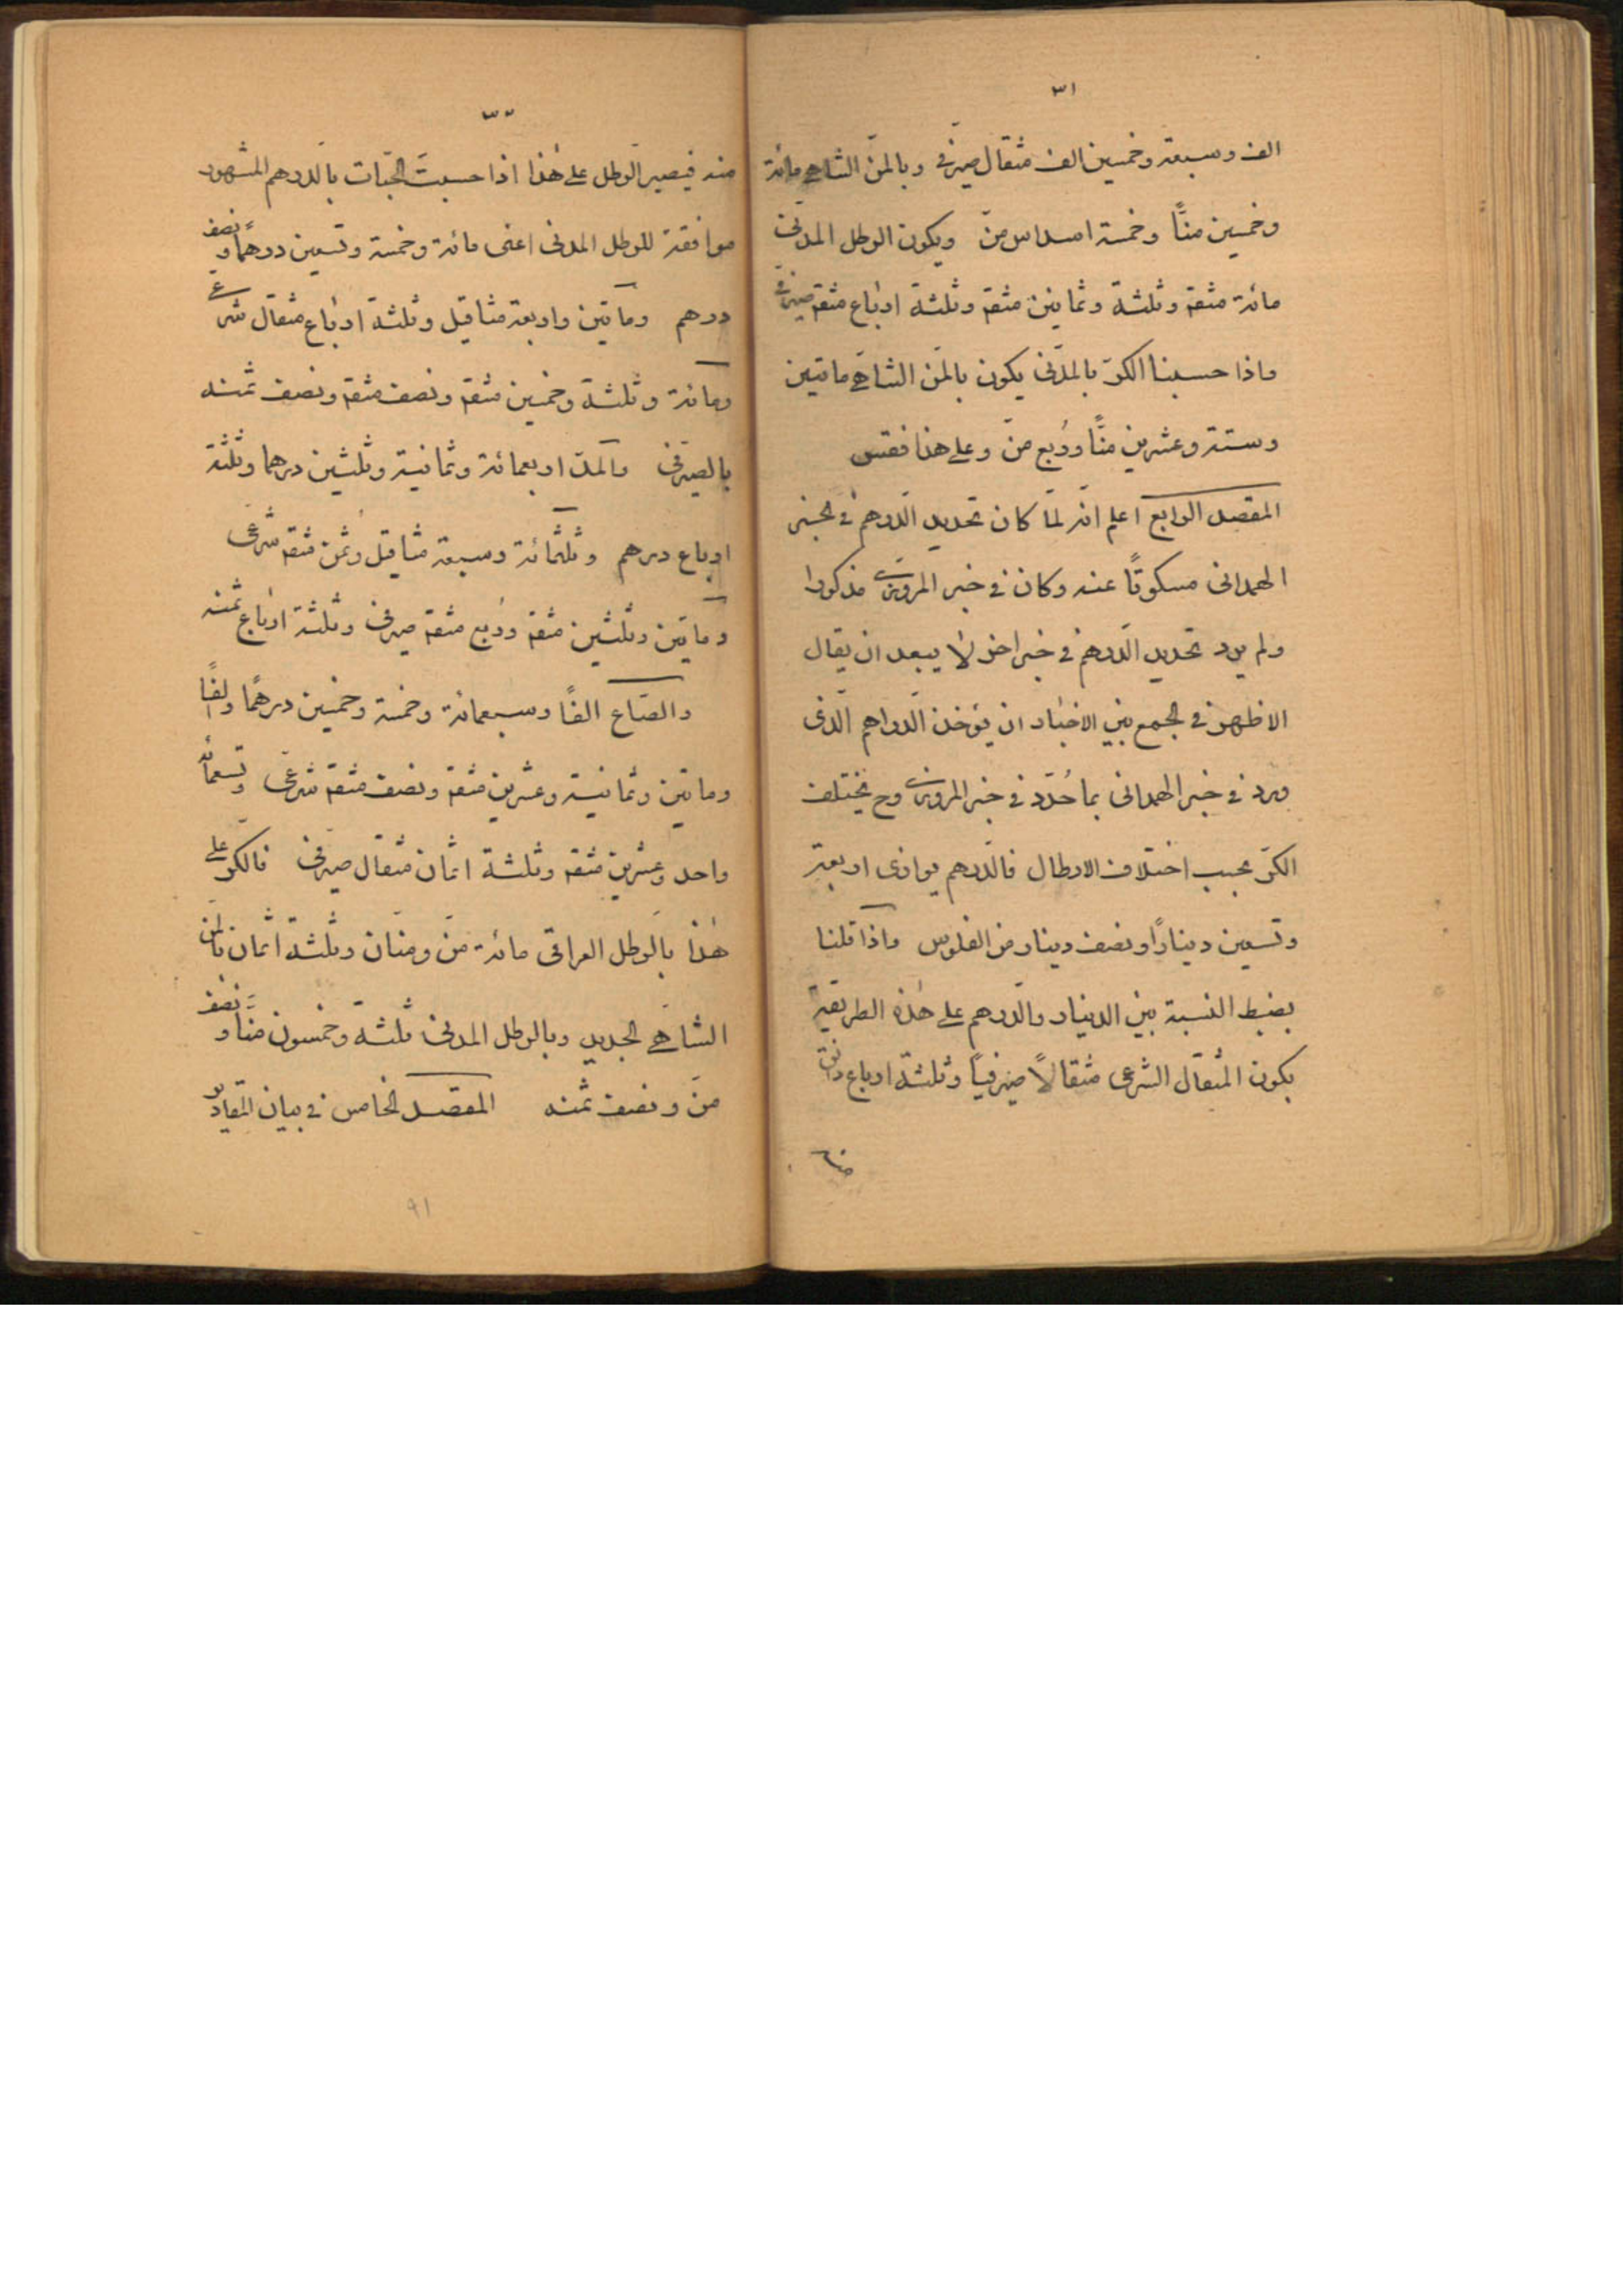 ٣١
الف وسبعة وخمسين الف مثقال صيرفى وبالمنّ الشاهي مائة
وخمسين منًّا وخمسة اسداس منّ ويكون الرطل المدنى
مائة مثقم وثلثة وثمانين مثقم وثلثة ارباع مثقم صيرفى
واذا حسبنا الكرّ بالمدنى يكون بالمن الشاهي مأتين
وستة وعشرين منًّا ورُبع منّ وعلى هذا فقس
المقصد الرابع اعلم انّه لمّا كان تحديد الدرهم في خبر
الهمدانى مسكوتًا عنه وكان في خبر المروزى مذكورا
ولم يرد تحديد الدرهم في خبر اخر لا يبعد ان يقال
الاظهر في الجمع بين الاخبار ان يؤخذ الدراهم الّذى
ورد في خبر الهمدانى بما حُدّد في خبر المروزى وح يختلف
الكرّ بحسب اختلاف الارطال فالدرهم يوازى اربعة
وتسعين دينارًا ونصف دينار من الفلوس واذا قلنا
بضبط النسبة بين الدينار والدرهم على هذه الطريقة
يكون المثقال الشرعى مثقالًا صيرفيًا وثلثة ارباع دانق
منه
٣٢
منه فيصير الرطل على هذا اذا حسبت الحبّات بالدرهم المشهور
موافقة للرطل المدنى اعنى مائة وخمسة وتسعين درهمًا ونصف
درهم ومأتين واربعة مثاقيل وثلثة ارباع مثقال شرعي
ومائة وثلثة وخمسين مثقم ونصف مثقم ونصف ثمنه
بالصيرفى والمد اربعمائة وثمانية وثلثين درهما وثلثة
ارباع درهم وثلثمائة وسبعة مثاقيل وثمن مثقم شرعى
ومأتين وثلثين مثقم ورُبع مثقم صيرفى وثلثة ارباع ثمنه
والصّاع الفًا وسبعمائة وخمسة وخمسين درهمًا والفًا
ومأتين وثمانية وعشرين مثقم ونصف مثقم شرعى وتسعمائة
واحد وعشرين مثقم وثلثة اثمان مثقال صيرفى فالكرّ على
هذا بالرطل العراقى مائة منّ ومنّان وثلثة اثمان بالمن
الشاهي الجديد وبالرطل المدنى ثلثة وخمسون منًّا ونصف
منّ ونصف ثمنه المقصد الخامس في بيان المقادير
٩١